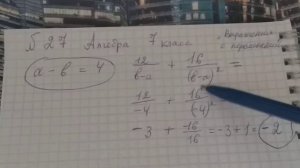 § 27 Алгебра 7 класс Выражения с переменной
a - b = 4 12/(b-a) + 16/(b-a)² =
12/-4 + 16/(-4)²
-3 + 16/16 = -3+1 = -2